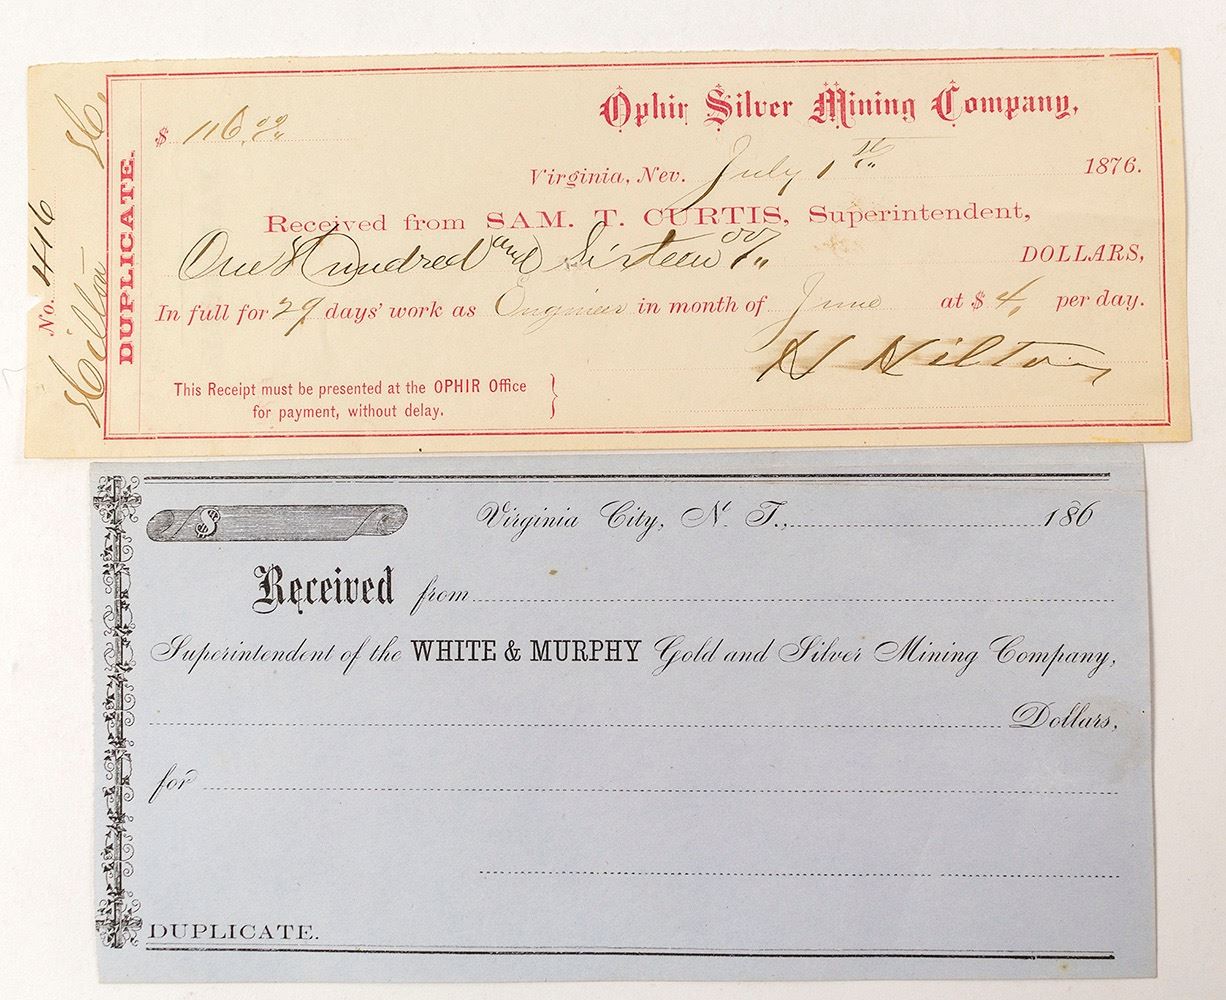 No. 446
Hilton H.
DUPLICATE.
$ 116.00
Ophir Silver Mining Company,
Virginia, Nev. July 1st 1876.
Received from SAM. T. CURTIS, Superintendent,
One Hundred and Sixteen 00/ DOLLARS,
In full for 29 days' work as Engineer in month of June at $ 4, per day.
H Hilton
This Receipt must be presented at the OPHIR Office
for payment, without delay.
$
Virginia City, N. T., 186
Received from
Superintendent of the WHITE & MURPHY Gold and Silver Mining Company,
Dollars,
for
DUPLICATE.